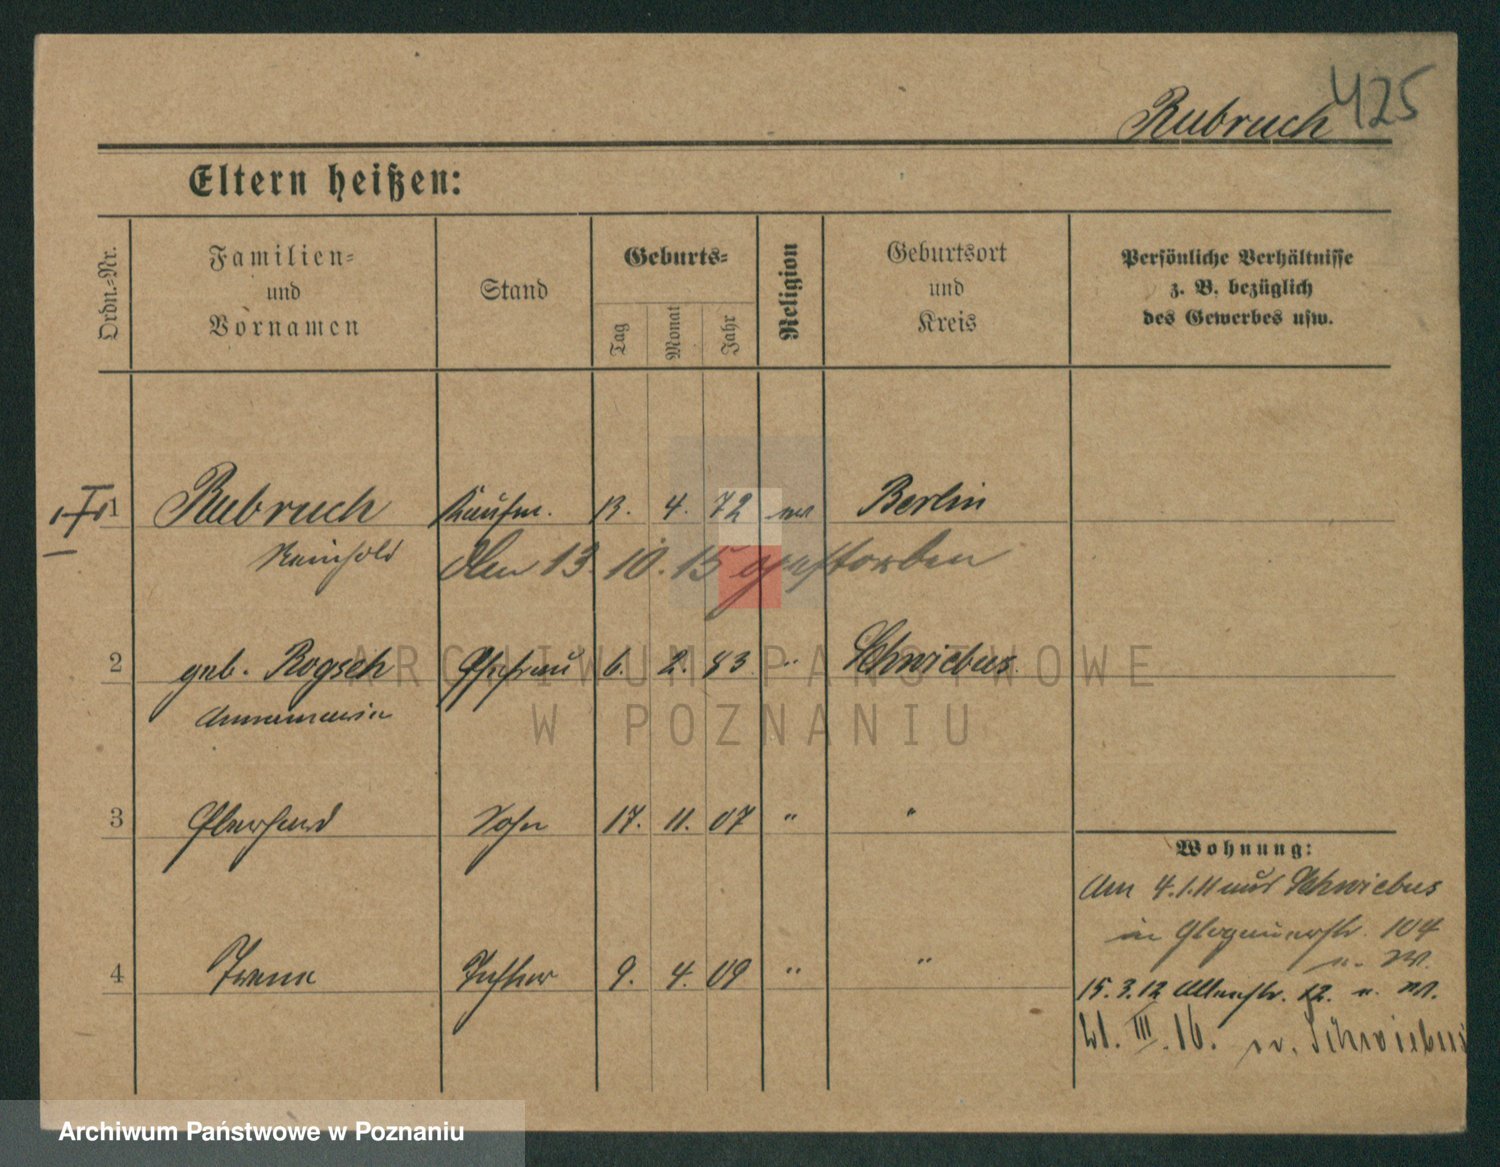 425
Rubruch
Eltern heißen:
Ordn.-Nr.
Familien-
und
Vornamen
Stand
Geburts-
Tag
Monat
Jahr
Religion
Geburtsort
und
Kreis
Persönliche Verhältnisse
z. B. bezüglich
des Gewerbes usw.
1 Rubruch Kaufm. 13. 4. 72 ev Berlin
Reinhold den 13. 10. 15 gestorben
2 geb. Rogsch Ehefrau 6. 2. 83 " Schwiebus
Annemarie
3 Eberhard Sohn 17. 11. 07 " "
Wohnung:
Am 4.1.11 aus Schwiebus
in Glogauerstr. 104
4 Irene Tochter 9. 4. 09 " "
15. 3. 12 12.
21. III. 16. n. Schwiebus
ARCHIWUM PAŃSTWOWE
W POZNANIU
Archiwum Państwowe w Poznaniu